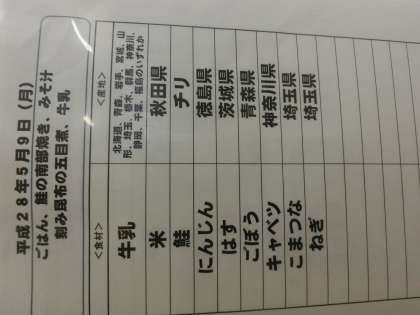 平成28年5月9日（月）
ごはん、鮭の南部焼き、みそ汁
刻み昆布の五目煮、牛乳
＜食材＞ ＜産地＞
牛乳 北海道、青森、岩手、宮城、山
形、埼玉、栃木、群馬、神奈川、
静岡、千葉、福島のいずれか
米 秋田県
鮭 チリ
にんじん 徳島県
はす 茨城県
ごぼう 青森県
キャベツ 神奈川県
こまつな 埼玉県
ねぎ 埼玉県